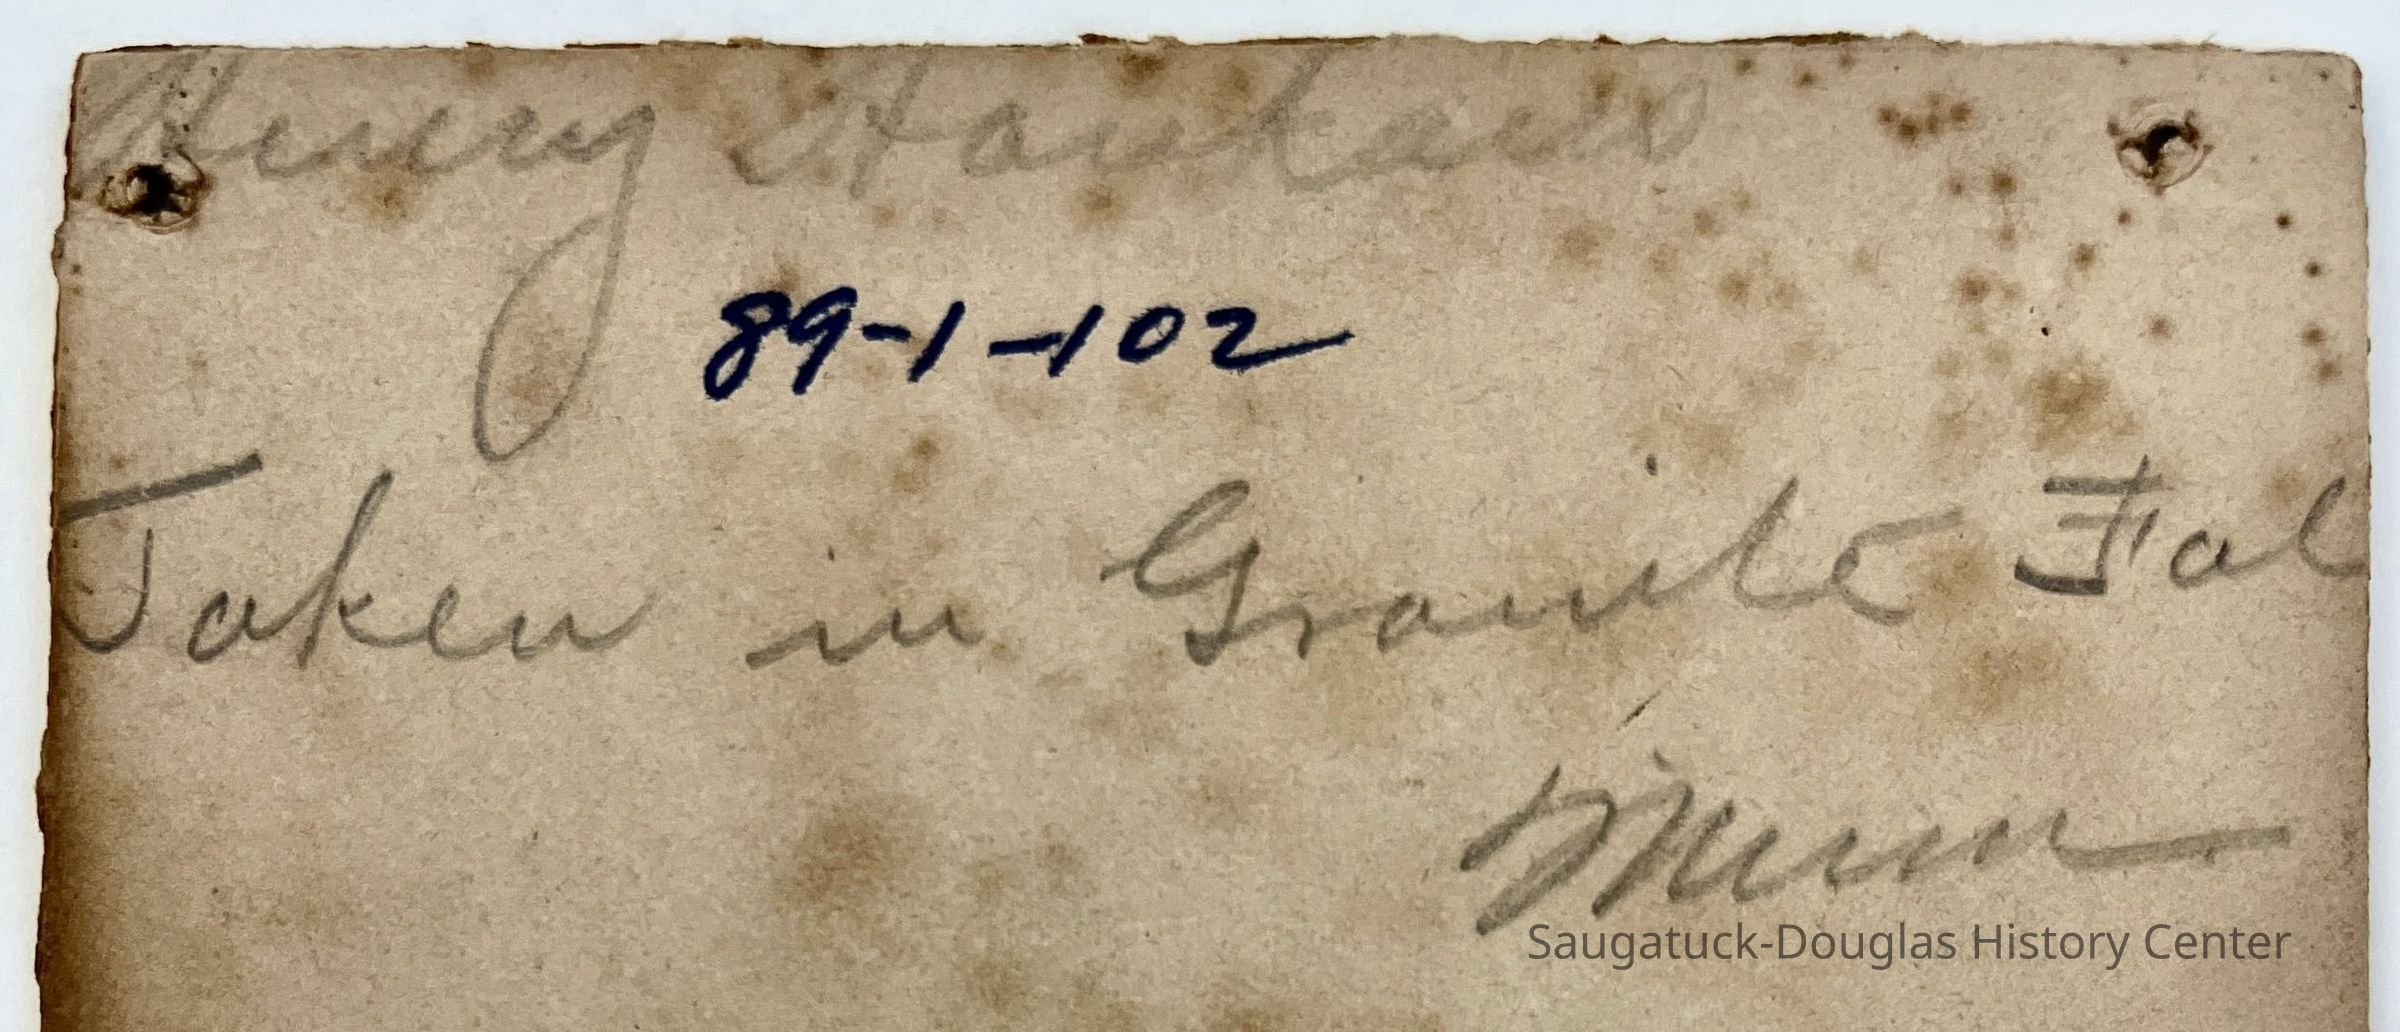 Henry
89-1-102
Taken in Granite Fal
Minn
Saugatuck-Douglas History Center